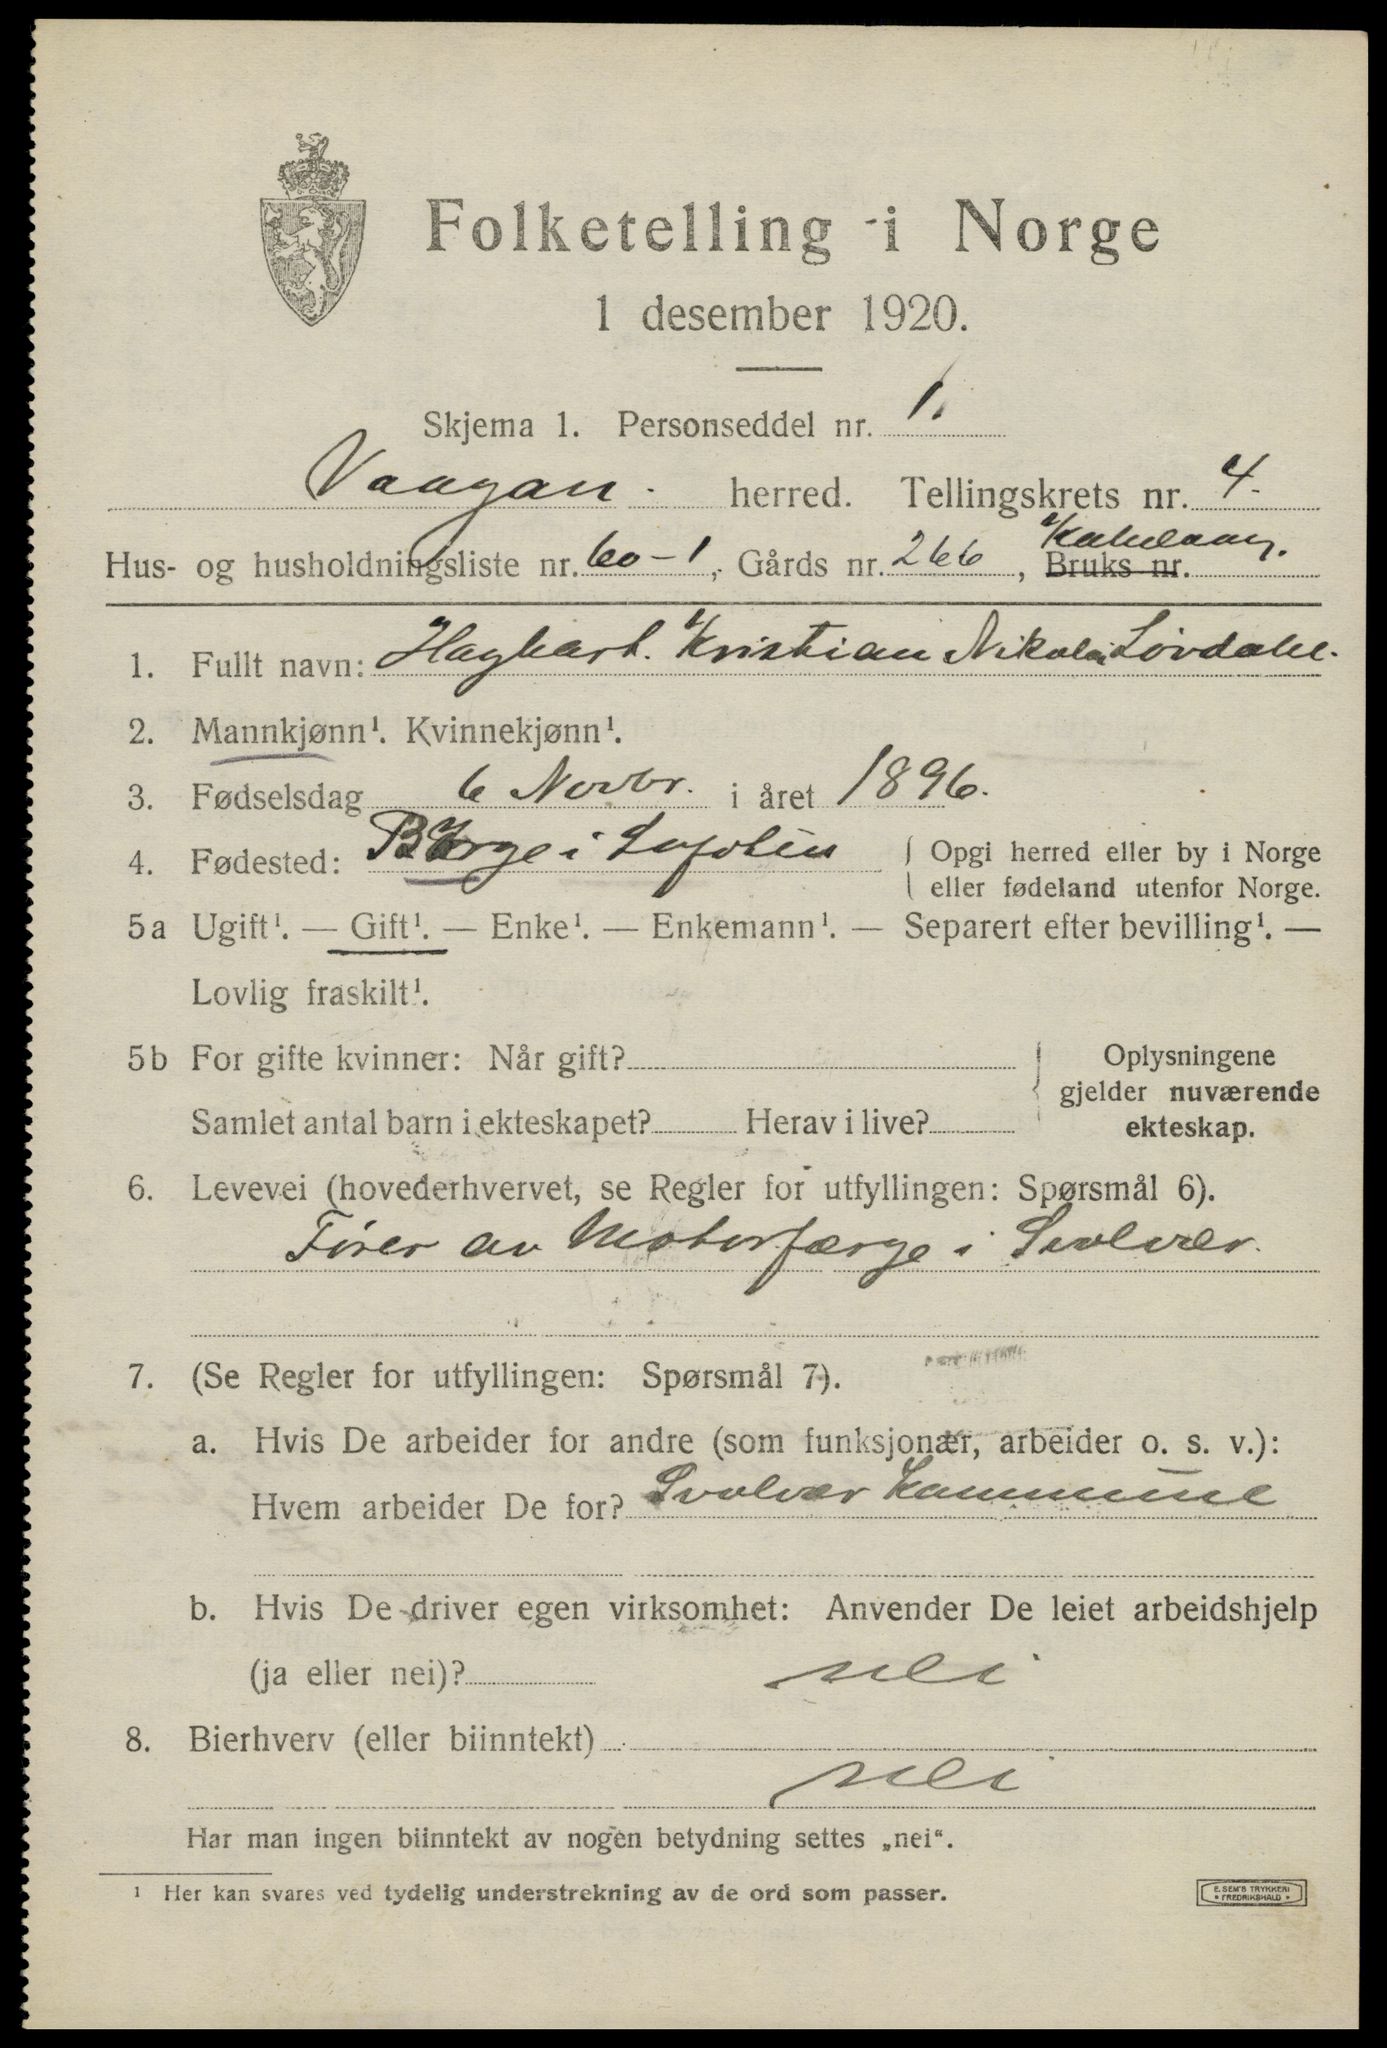 Folketelling i Norge
1 desember 1920.
Skjema 1. Personseddel nr. 1.
Vaagan. herred. Tellingskrets nr. 4.
Hus- og husholdningsliste nr. 60-1, Gårds nr. 266, Bruks nr. Kabelvaag.
1. Fullt navn: Hagbart. Kristian Nikolai Lövdahl.
2. Mannkjønn¹. Kvinnekjønn¹.
3. Fødselsdag 6 Novbr. i året 1896.
4. Fødested: Börge i Lofoten
Opgi herred eller by i Norge
eller fødeland utenfor Norge.
5a Ugift¹. — Gift¹. — Enke¹. — Enkemann¹. — Separert efter bevilling¹. —
Lovlig fraskilt¹.
5b For gifte kvinner: Når gift?
Samlet antal barn i ekteskapet? Herav i live?
Oplysningene
gjelder nuværende
ekteskap.
6. Levevei (hovederhvervet, se Regler for utfyllingen: Spørsmål 6).
Förer av Motorfærge i Svolvær.
7. (Se Regler for utfyllingen: Spørsmål 7).
a. Hvis De arbeider for andre (som funksjonær, arbeider o. s. v.):
Hvem arbeider De for? Svolvær Kommune
b. Hvis De driver egen virksomhet: Anvender De leiet arbeidshjelp
(ja eller nei)? nei
8. Bierhverv (eller biinntekt)
nei
Har man ingen biinntekt av nogen betydning settes „nei“.
¹ Her kan svares ved tydelig understrekning av de ord som passer.
E. SEM'S TRYKKERI
• FREDRIKSHALD •